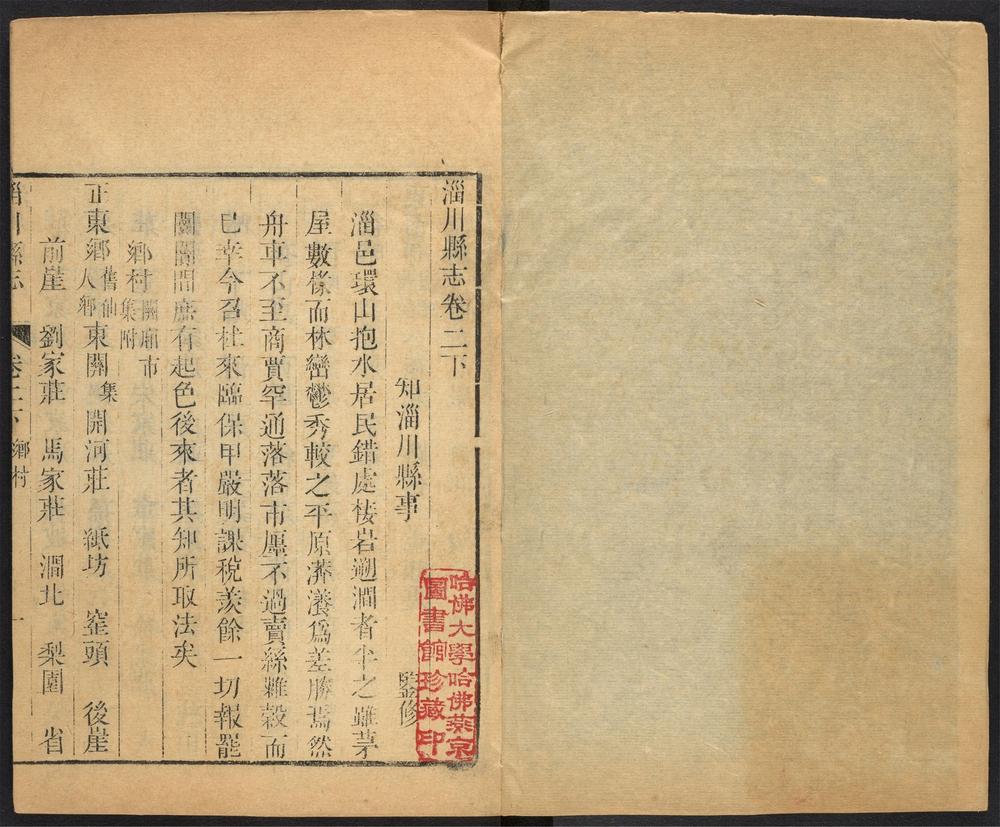 淄川縣志卷二下
知淄川縣事 監修
淄邑環山抱水居民錯處棲岩遡澗者半之雖茅
屋數椽而林巒鬱秀較之平原漭瀁爲差勝焉然
舟車不至商賈罕通落落市廛不過賣絲雜穀而
已幸今召杜來臨保甲嚴明課稅羨餘一切報罷
闤闠間庶有起色後來者其知所取法矣
鄉村關廂市集附
正東鄉舊仙人鄉東關集開河莊 紙坊 窪頭 後崖
前崖 劉家莊 馬家莊 澗北 梨園 省
淄川縣志 卷二下 鄉村 一
哈佛大學哈佛燕京
圖書館珍藏印